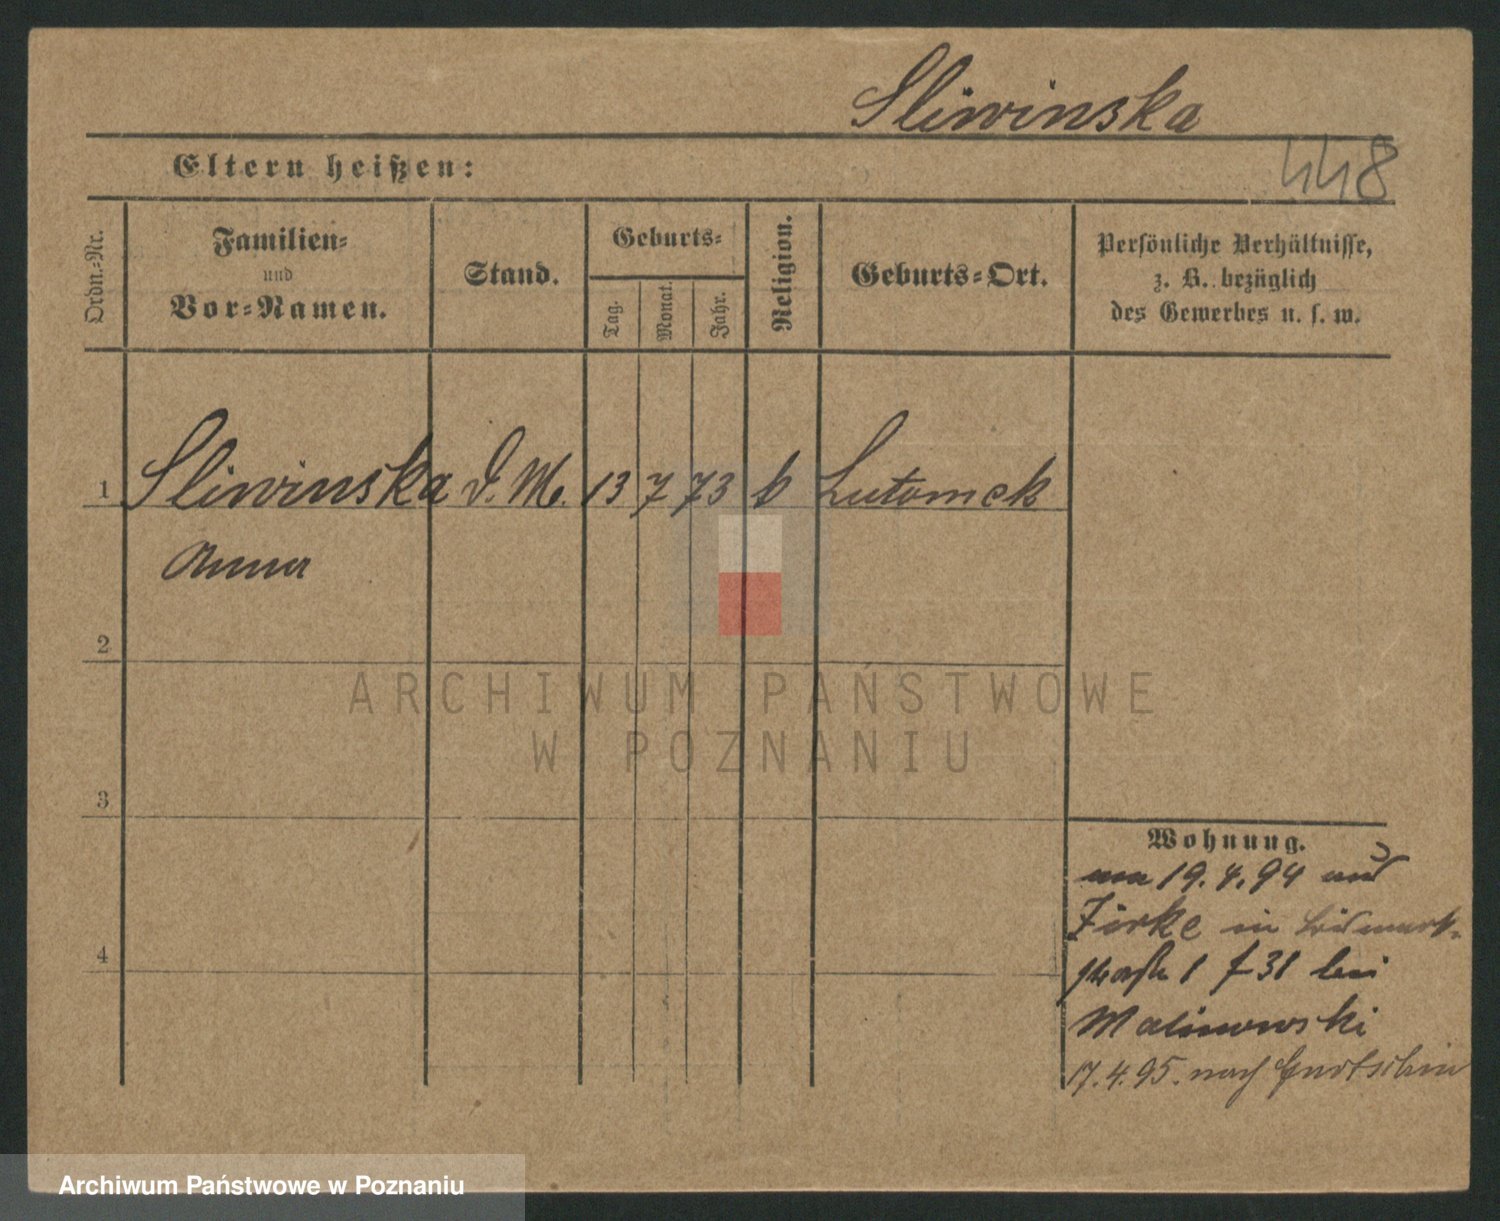 Sliwinska
448
Eltern heißen:
Ordn.-Nr.
Familien-
und
Vor-Namen.
Stand.
Geburts-
Tag.
Monat.
Jahr.
Religion.
Geburts-Ort.
Persönliche Verhältnisse,
z. B. bezüglich
des Gewerbes u. s. w.
1 Sliwinska D. M. 13 7 73 k Lutomek
Anna
2
3
4
Wohnung.
am 19.4.94 aus
Zirke in Bismark-
straße 1 f 31 bei
Malinowski
17.4.95. nach
ARCHIWUM PAŃSTWOWE
W POZNANIU
Archiwum Państwowe w Poznaniu